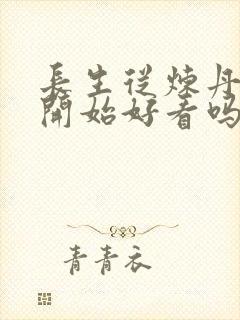 長生從煉丹
開始好看嗎
青青衣